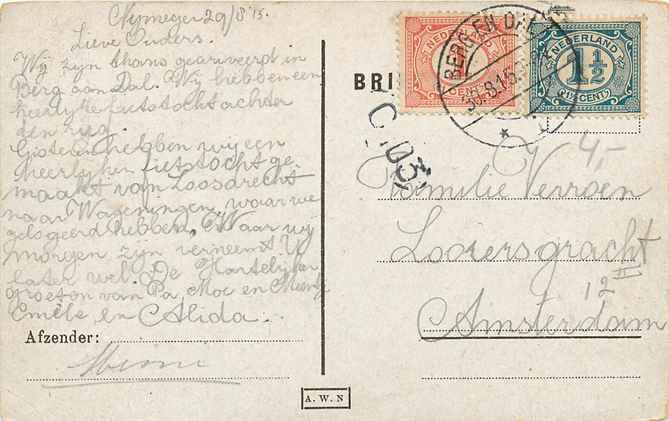 Nijmegen 29/8 '15.
Lieve Ouders.
Wij zijn thans gearriveerd in
Berg aan Dal. Wij hebben een
heerlijke fietstocht achter
den rug
Gisteren hebben wij een
heerlijken fietstocht ge-
maakt van Loosdrecht
naar Wageningen, waar we
gelogeerd hebben. Waar wij
morgen zijn verneemt U
later wel. De Hartelijke
groeten van Pa Moe en
Emile en Alida...
Afzender:
BRI
NEDERLAND
CENT
BERG EN DAL
30.8.15
NEDERLAND
1½
1½ CENT
4,-
Familie Verroen
Looiersgracht
12 II
Amsterdam
A.W.N